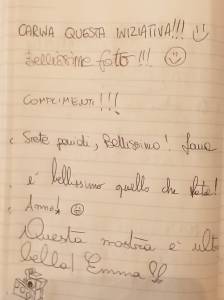 CARINA QUESTA INIZIATIVA!!!
Bellissime foto!!!
COMPLIMENTI!!!
Siete grandi, Bellissimo!
è bellissimo quello che fate!
Anna!
Questa mostra è
bella! Emma